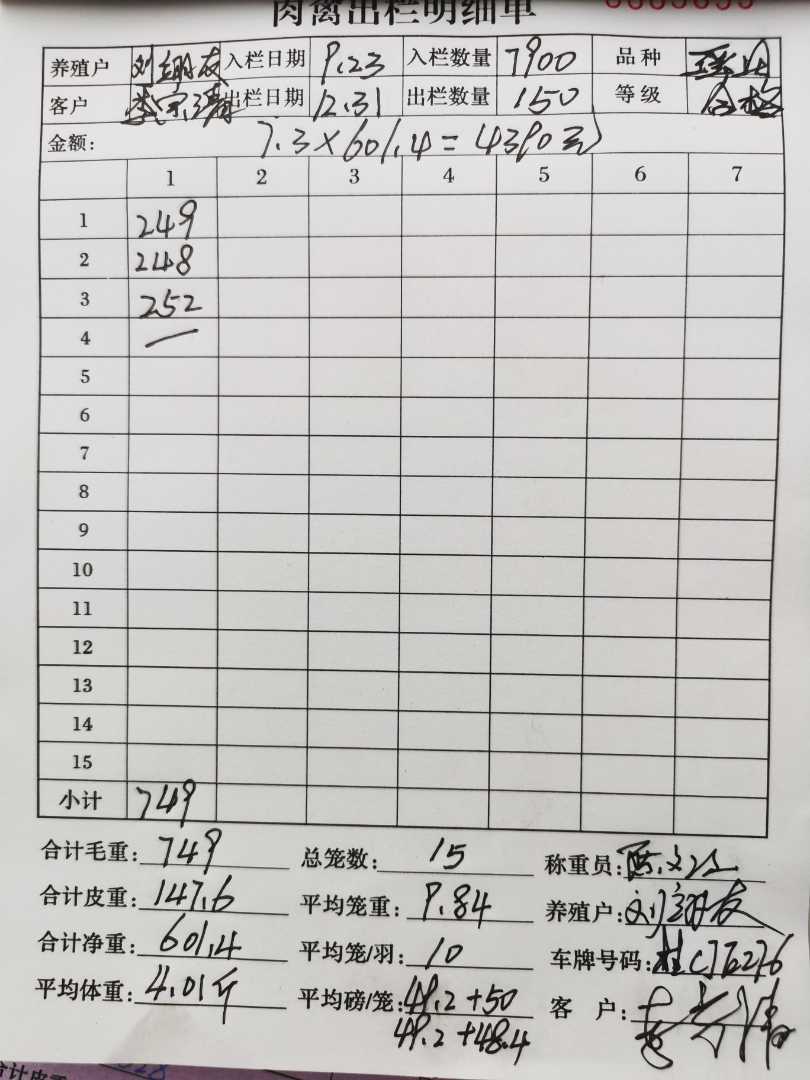 肉禽出栏明细单
养殖户 刘 友 入栏日期 9.23 入栏数量 7900 品种
客户 李宗 出栏日期 12.31 出栏数量 150 等级 合格
金额: 7.3×601.4=4390元
1 2 3 4 5 6 7
1 249
2 248
3 252
4 —
5
6
7
8
9
10
11
12
13
14
15
小计 749
合计毛重: 749 总笼数: 15 称重员: 文
合计皮重: 147.6 平均笼重: 9.84 养殖户: 刘 友
合计净重: 601.4 平均笼/羽: 10 车牌号码: 桂
平均体重: 4.01斤 平均磅/笼: 49.2+50 客户:
49.2+48.4
合计皮重